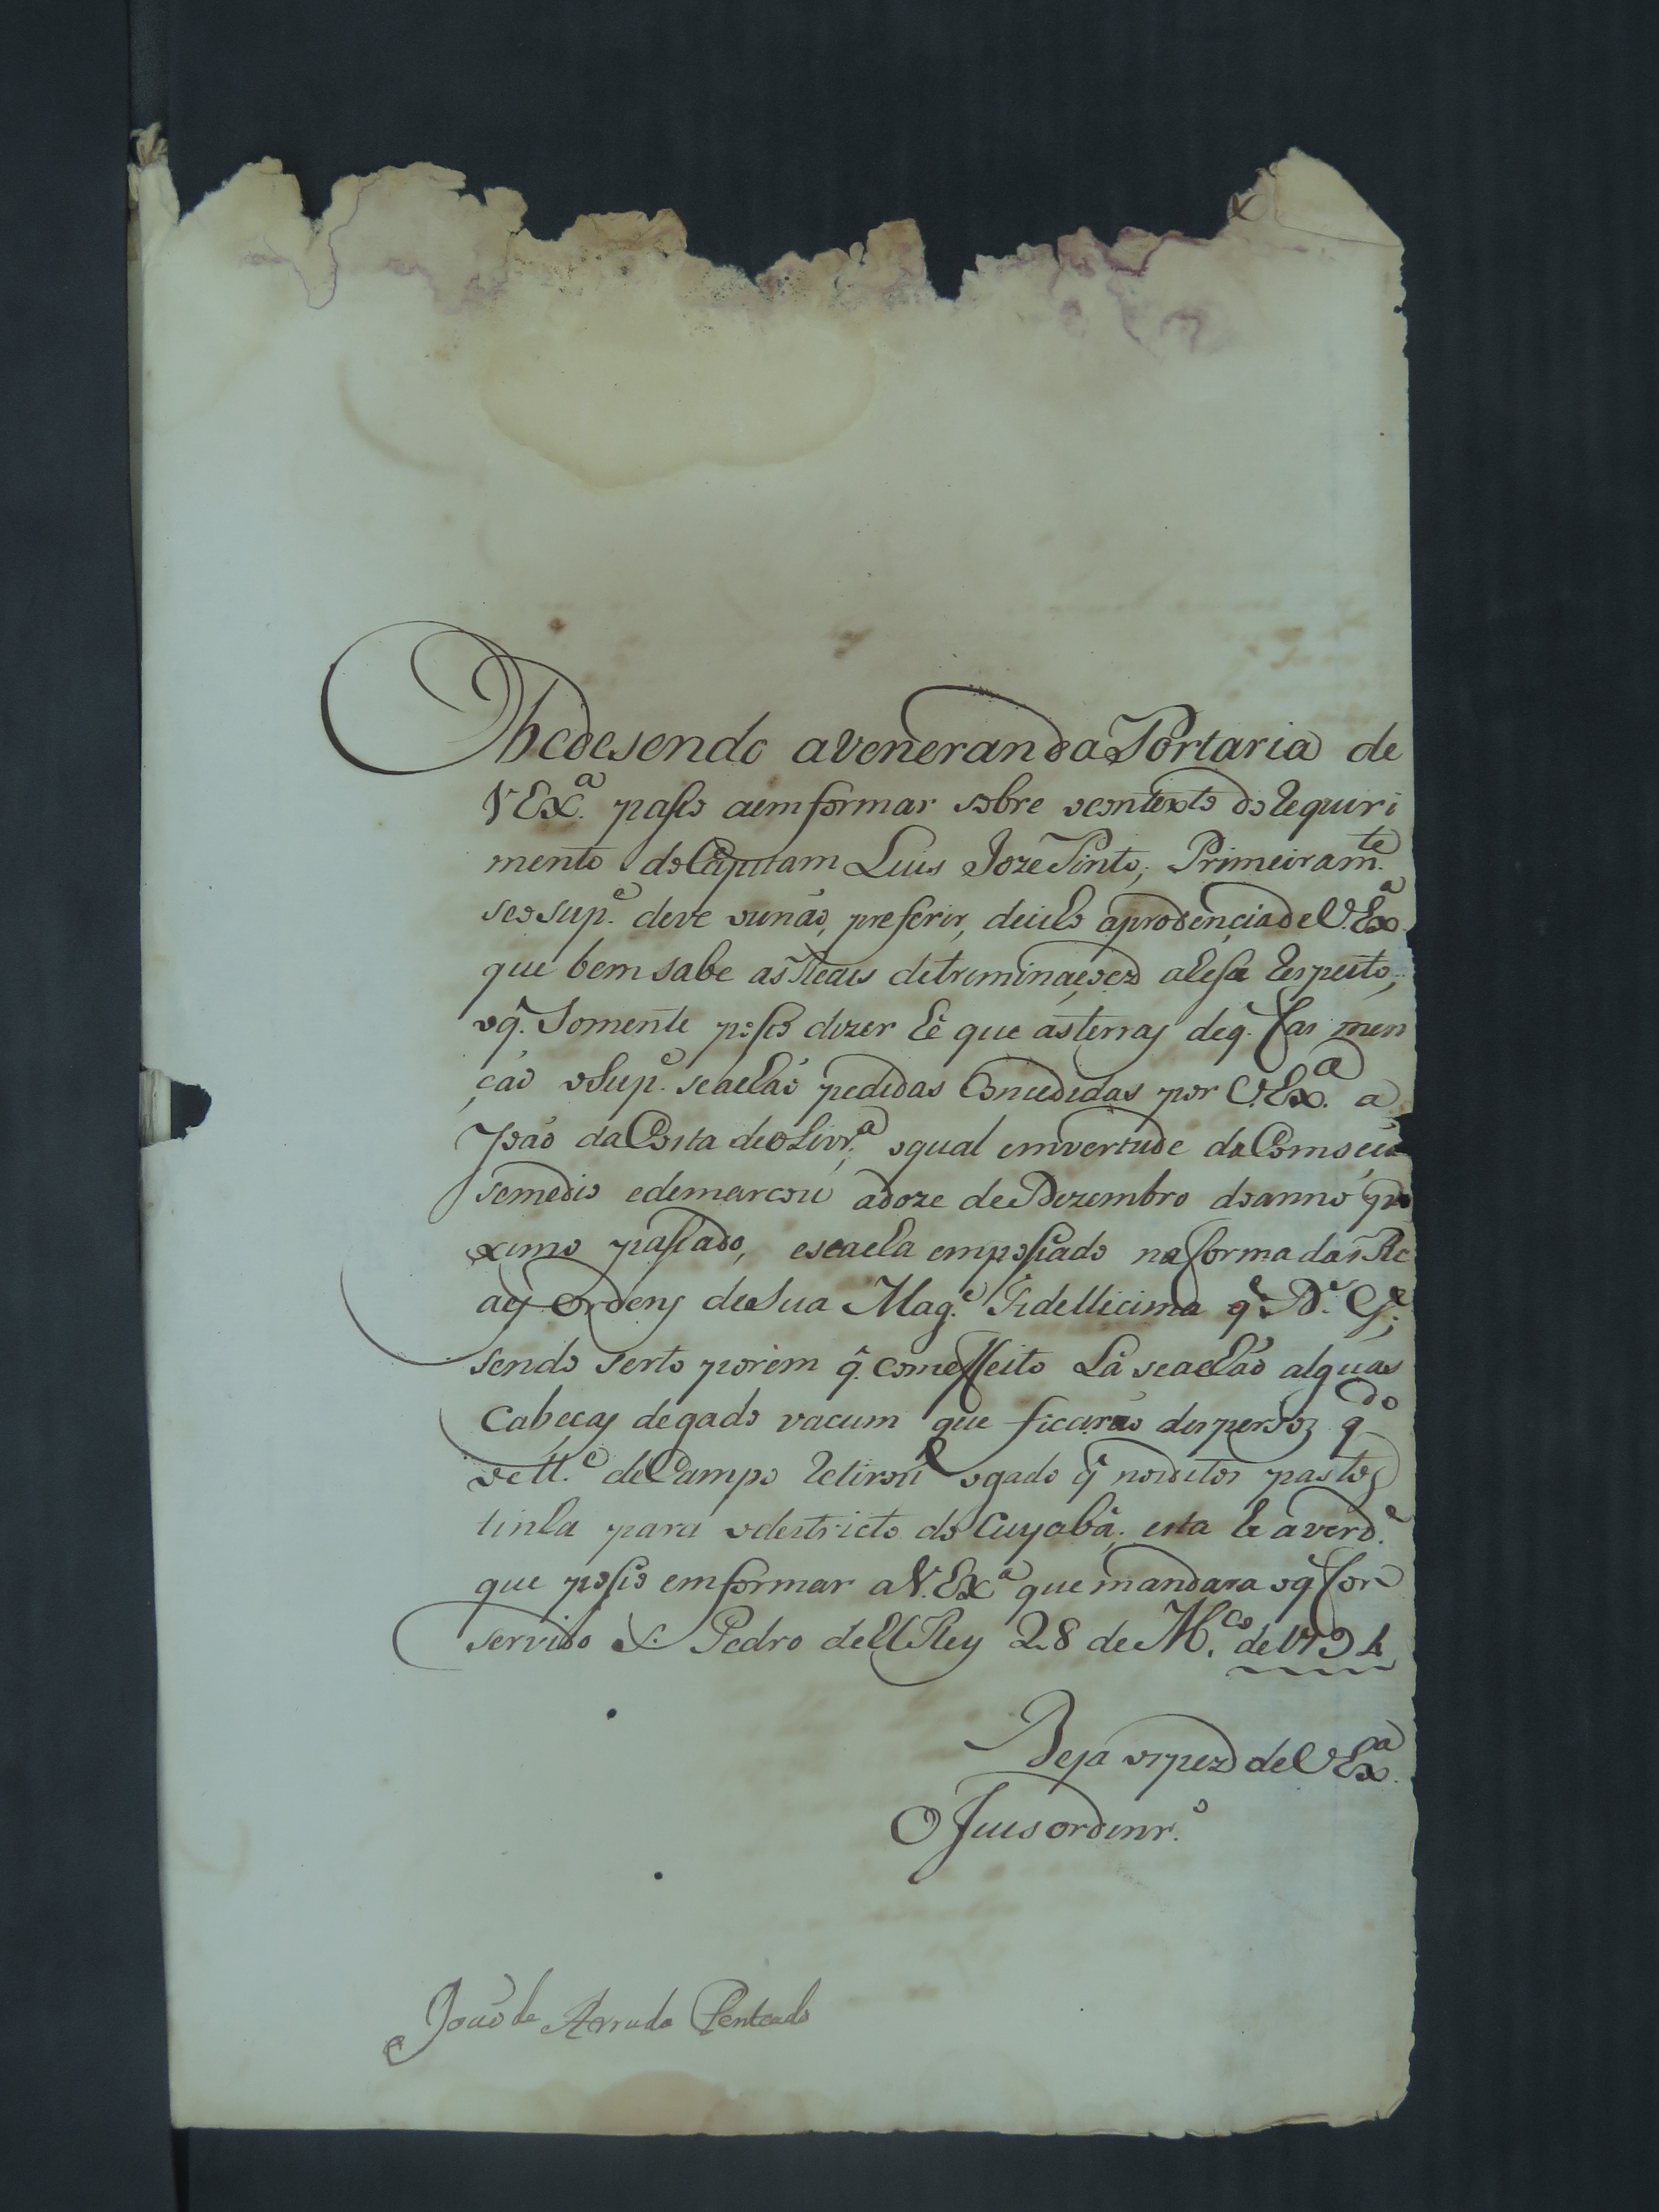 Obedesendo a veneranda Portaria de
V Exª. paso aemformar sobre ocontexto do Requiri
mento do Capitam Luis Joze Pinto; Primeiramte.
seosupe. deve ounaõ, preferir, deicho aprodençia de V. Exª.
que bem sabe as Reais detreminaçoez aheste Respeito;
oq̃. Somente poso dizer hê que asterras deq̃. fas men
çaõ oSupe. seachaõ pedidas Concedidas por V. Exª. a
Joaõ da Costa deOlivrª; oqual emvertude da Comseçaõ
semedio edemarcou adoze de Dezembro doanno pro
ximo pasado, eseacha emposado naforma das Re
aes Ordens de Sua Mage. Fidellicima q̃. Ds. Ge;
sendo serto porem q̃. comeffeito Lá seachaõ alguas
Cabeças degado vacum que ficaraõ disperssoz qdo
oMe. de Campo Retirou ogado q̃ noiditos pastos
tinha para odestricto do Cuyabá; esta he averde.
que poso emformar a V. Exª. que mandara oq̃ for
servido S. Pedro del Rey 28 de Mço. de 1794
Beja ospez de V Exª.
O Juis ordinro.
Joaõ de Arruda Penteado